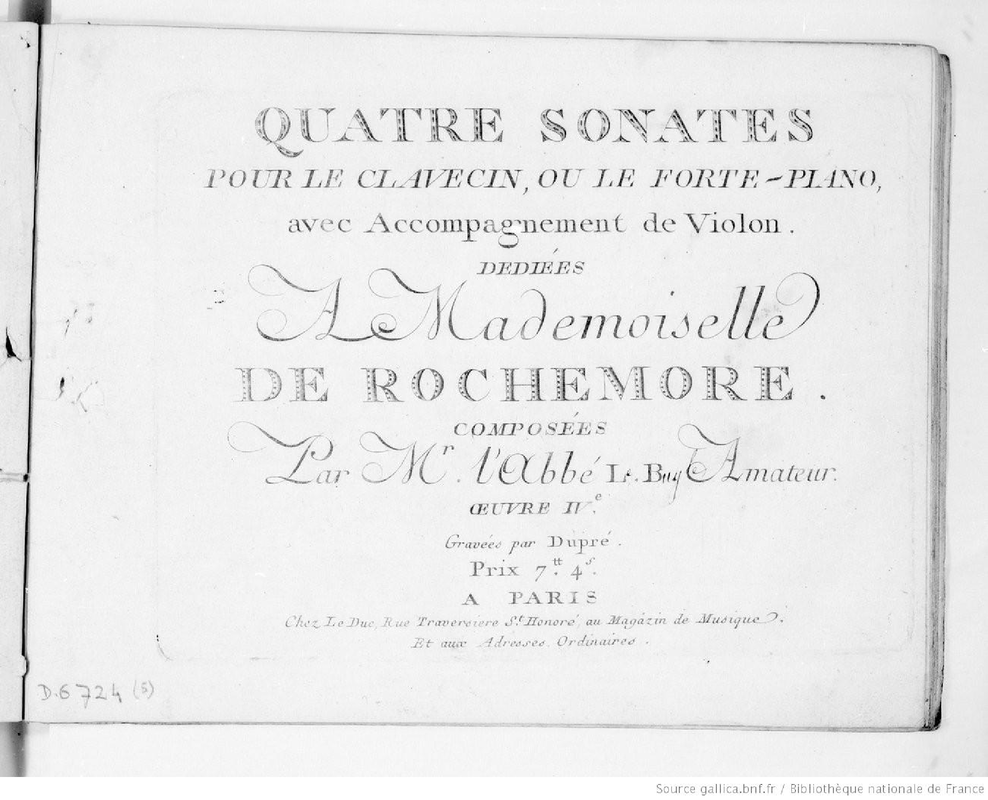 QUATRE SONATES
POUR LE CLAVECIN, OU LE FORTE-PIANO,
avec Accompagnement de Violon.
DEDIÉES
A Mademoiselle
DE ROCHEMORE.
COMPOSÉES
Par Mr. l'Abbé Le Bug Amateur.
ŒUVRE IV.e
Gravées par Dupré.
Prix 7.tt 4.s
A PARIS
Chez Le Duc, Rue Traversiere St. Honoré, au Magazin de Musique.
Et aux Adresses Ordinaires.
D.6724 (5)
Source gallica.bnf.fr / Bibliothèque nationale de France